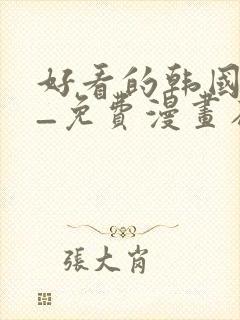 好看的韩國
–免費漫畫
張大肖